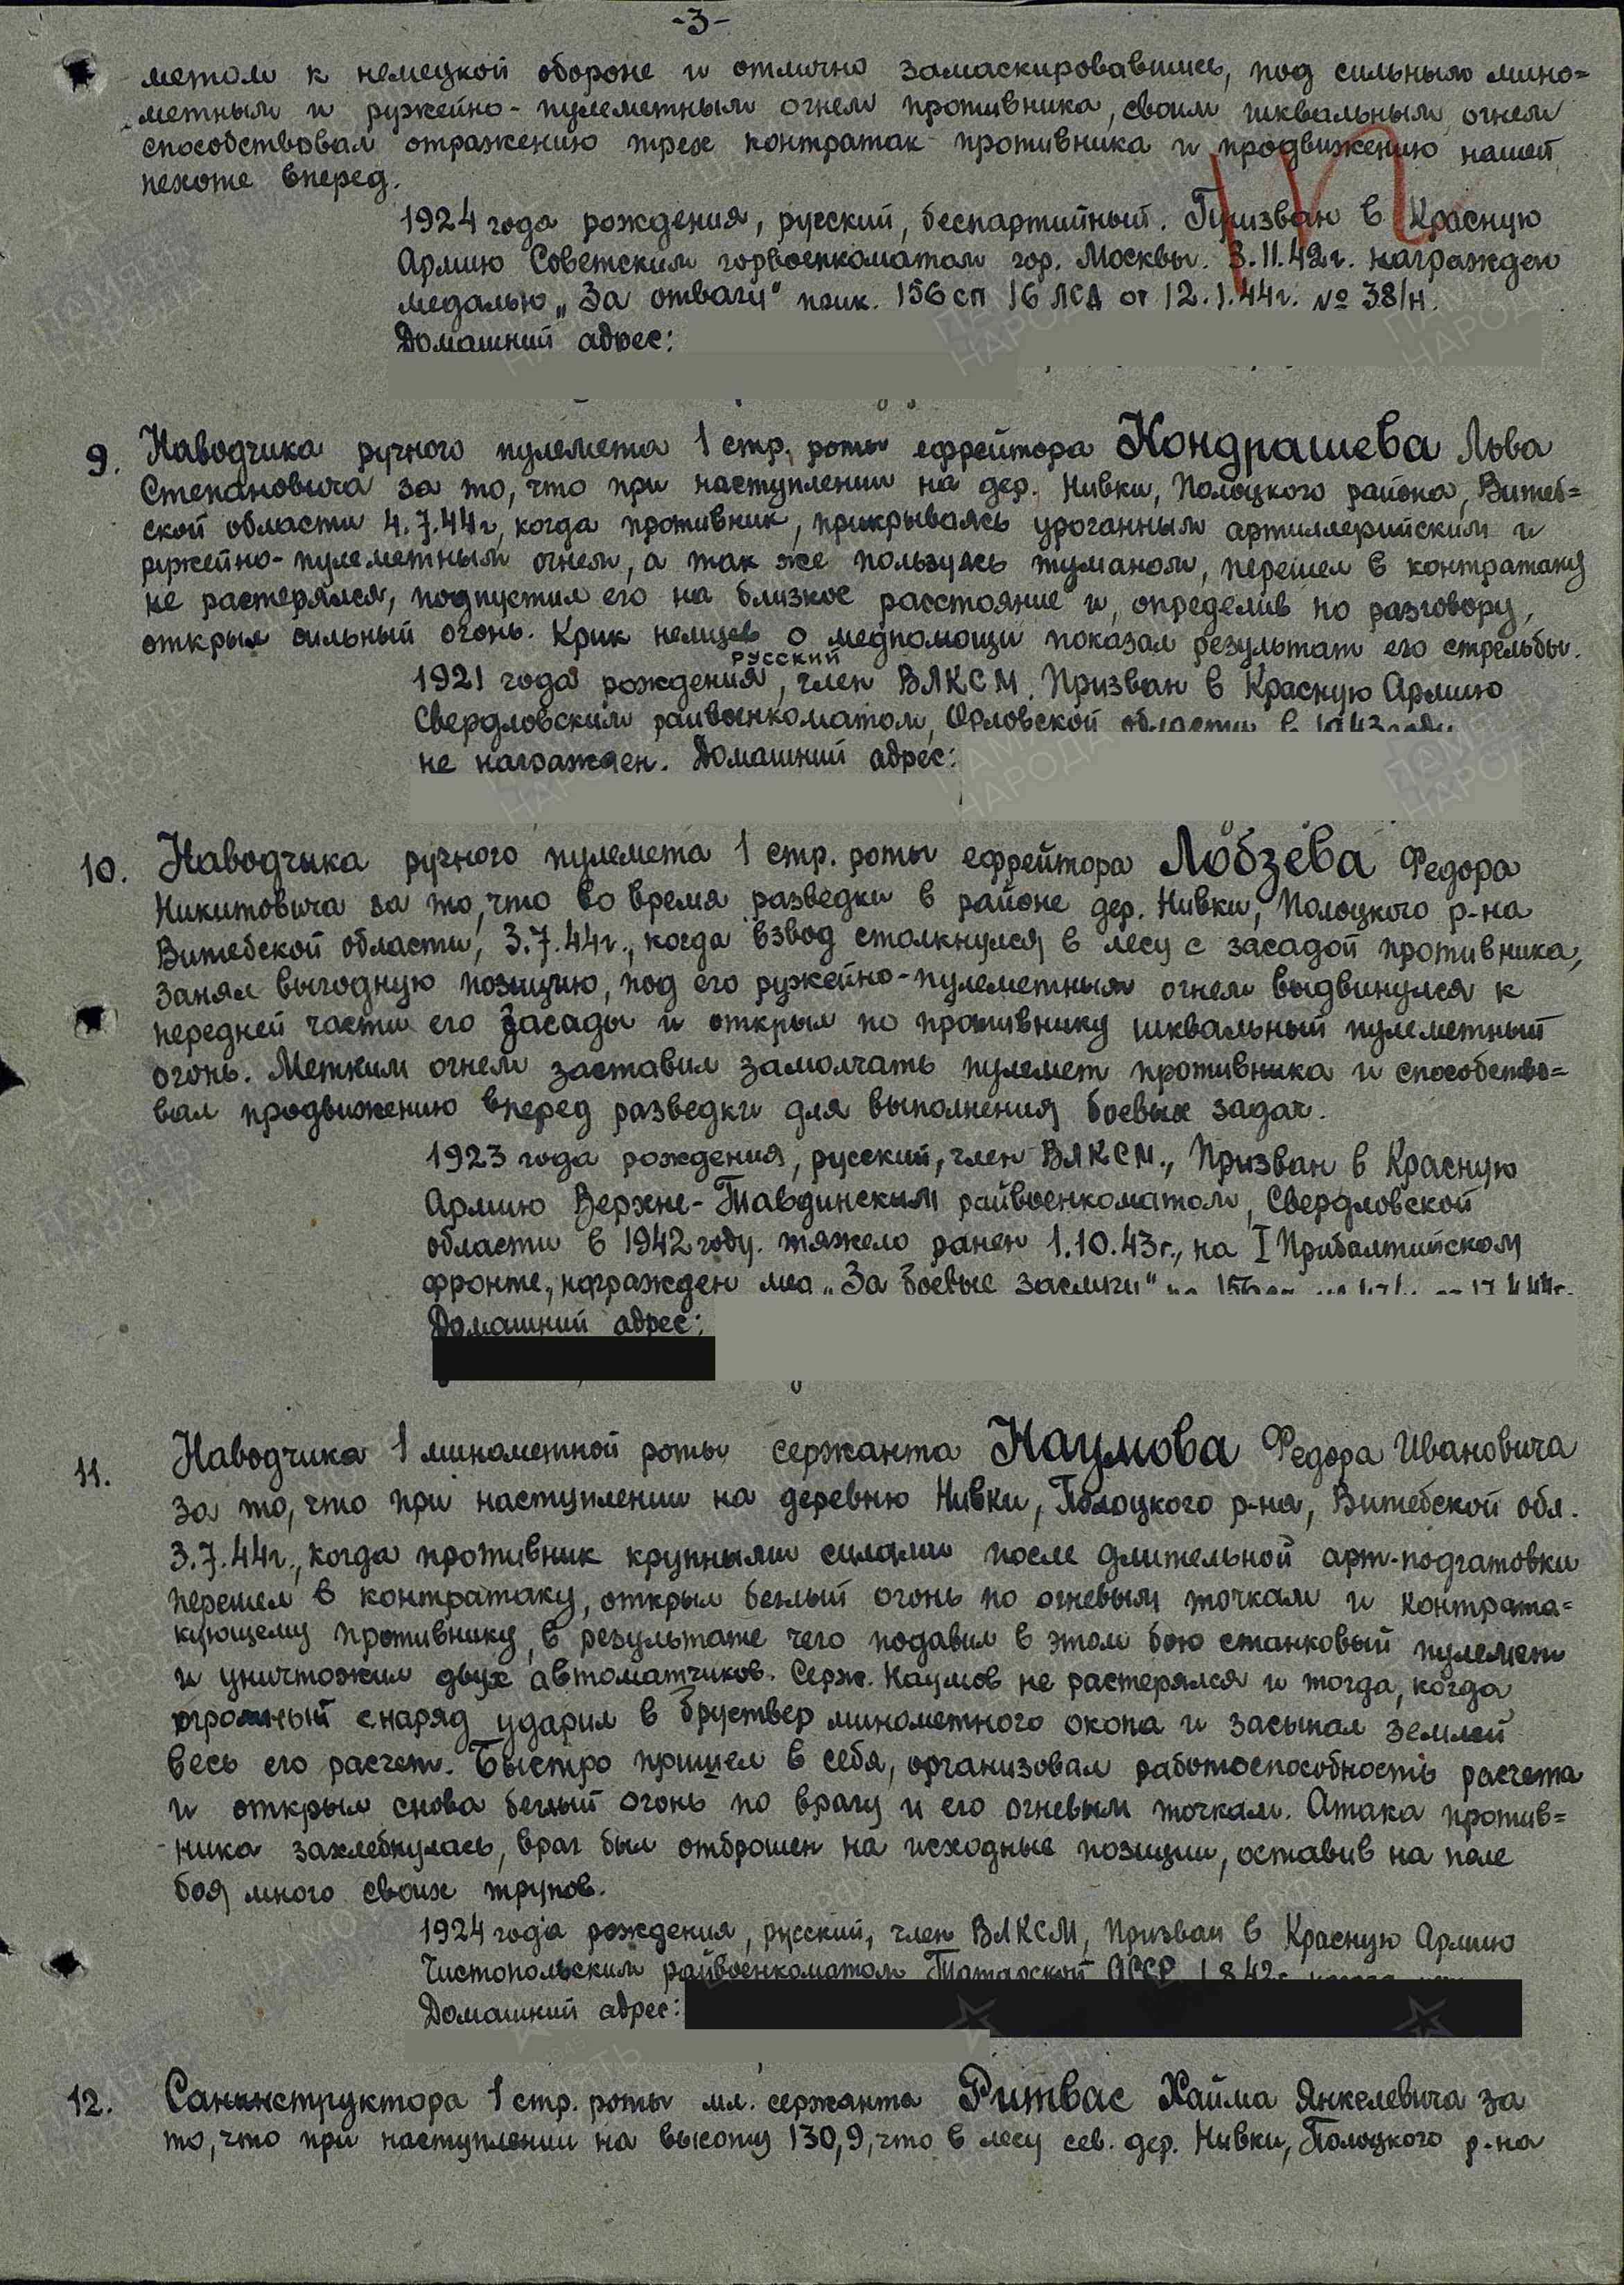 -3-
метом к немецкой обороне и отлично замаскировавшись, под сильным мино=
метным и ружейно-пулеметным огнем противника, своим шквальным огнем
способствовал отражению трех контратак противника и продвижению нашей
пехоте вперед.
1924 года рождения, русский, беспартийный. Призван в Красную
Армию Советским горвоенкоматом гор. Москвы. 3.11.42г. награжден
медалью „За отвагу" прик. 156 сп 16 ЛСД от 12.1.44г. № 38/н.
Домашний адрес:
9. Наводчика ручного пулемета 1 стр. роты ефрейтора Кондрашева Льва
Степановича за то, что при наступлении на дер. Нивки, Полоцкого района, Витеб=
ской области 4.7.44г, когда противник, прикрываясь ураганным артиллерийским и
ружейно-пулеметным огнем, а так же пользуясь туманом, перешел в контратаку
не растерялся, подпустил его на близкое расстояние и, определив по разговору,
открыл сильный огонь. Крик немцев о медпомощи показал результат его стрельбы.
русский
1921 года рождения, член ВЛКСМ. Призван в Красную Армию
Свердловским райвоенкоматом, Орловской области в 1943 году
не награжден. Домашний адрес:
10. Наводчика ручного пулемета 1 стр. роты ефрейтора Лобзева Федора
Никитовича за то, что во время разведки в районе дер. Нивки, Полоцкого р-на
Витебской области, 3.7.44г., когда взвод столкнулся в лесу с засадой противника,
занял выгодную позицию, под его ружейно-пулеметным огнем выдвинулся к
передней части его засады и открыл по противнику шквальный пулеметный
огонь. Метким огнем заставил замолчать пулемет противника и способство=
вал продвижению вперед разведки для выполнения боевых задач.
1923 года рождения, русский, член ВЛКСМ., Призван в Красную
Армию Верхне-Тавдинским райвоенкоматом, Свердловской
области в 1942 году. тяжело ранен 1.10.43г., на I Прибалтийском
фронте, награжден мед „За боевые заслуги"
Домашний адрес:
11. Наводчика 1 минометной роты сержанта Наумова Федора Ивановича
за то, что при наступлении на деревню Нивки, Полоцкого р-на, Витебской обл.
3.7.44г., когда противник крупными силами после длительной арт-подгатовки
перешел в контратаку, открыл беглый огонь по огневым точкам и контрата=
кующему противнику, в результате чего подавил в этом бою станковый пулемет
и уничтожил двух автоматчиков. Серж. Наумов не растерялся и тогда, когда
огромный снаряд ударил в бруствер минометного окопа и засыпал землей
весь его расчет. Быстро пришел в себя, организовал работоспособность расчета
и открыл снова беглый огонь по врагу и его огневым точкам. Атака против=
ника захлебнулась, враг был отброшен на исходные позиции, оставив на поле
боя много своих трупов.
1924 года рождения, русский, член ВЛКСМ, Призван в Красную Армию
Чистопольским райвоенкоматом Татарской АССР
Домашний адрес:
12. Санинструктора 1 стр. роты мл. сержанта Ритвас Хайма Янкелевича за
то, что при наступлении на высоту 130,9, что в лесу сев. дер. Нивки, Полоцкого р-на